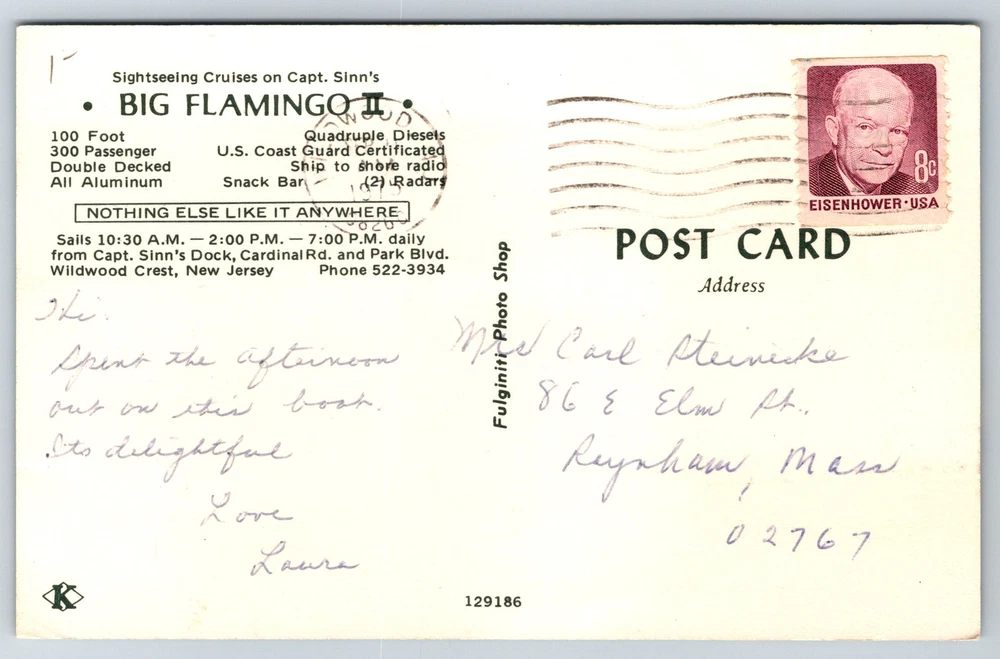 Sightseeing Cruises on Capt. Sinn's
• BIG FLAMINGO II •
100 Foot Quadruple Diesels
300 Passenger U.S. Coast Guard Certificated
Double Decked Ship to shore radio
All Aluminum Snack Bar (2) Radars
NOTHING ELSE LIKE IT ANYWHERE
Sails 10:30 A.M. — 2:00 P.M. — 7:00 P.M. daily
from Capt. Sinn's Dock, Cardinal Rd. and Park Blvd.
Wildwood Crest, New Jersey Phone 522-3934
Hi.
Spent the afternoon
out on this boat.
Its delightful
Love
Laura
K
129186
Fulginiti Photo Shop
8c
EISENHOWER·USA
POST CARD
Address
Mrs Carl Steinecke
86 E Elm St.,
Raynham, Mass
02767